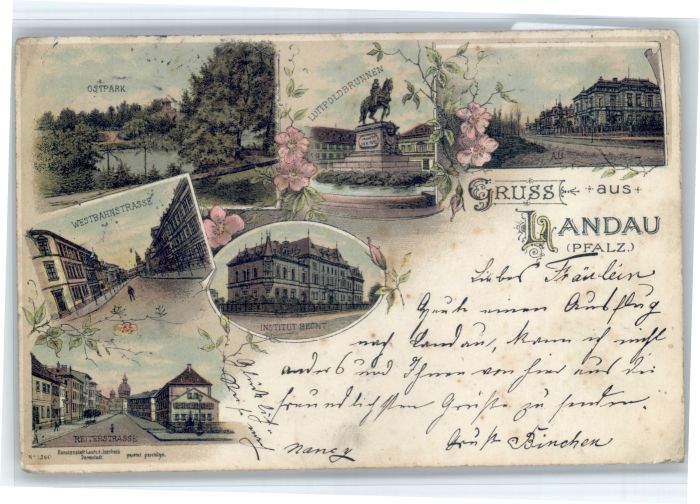 OSTPARK
LUITPOLDBRUNNEN
GRUSS aus
LANDAU
(PFALZ.)
WESTBAHNSTRASSE
INSTITUT BECHT
REITERSTRASSE
No 1260
Kunstanstalt Lautz & Isenbeck
Darmstadt.
gesetzl. geschützt.
Liebes Fräulein
Heute einen Ausflug
nach Landau, kann ich nicht
anders und Ihnen von hier aus die
freundlichsten Grüße zu senden.
Gruß Binchen
Nancy